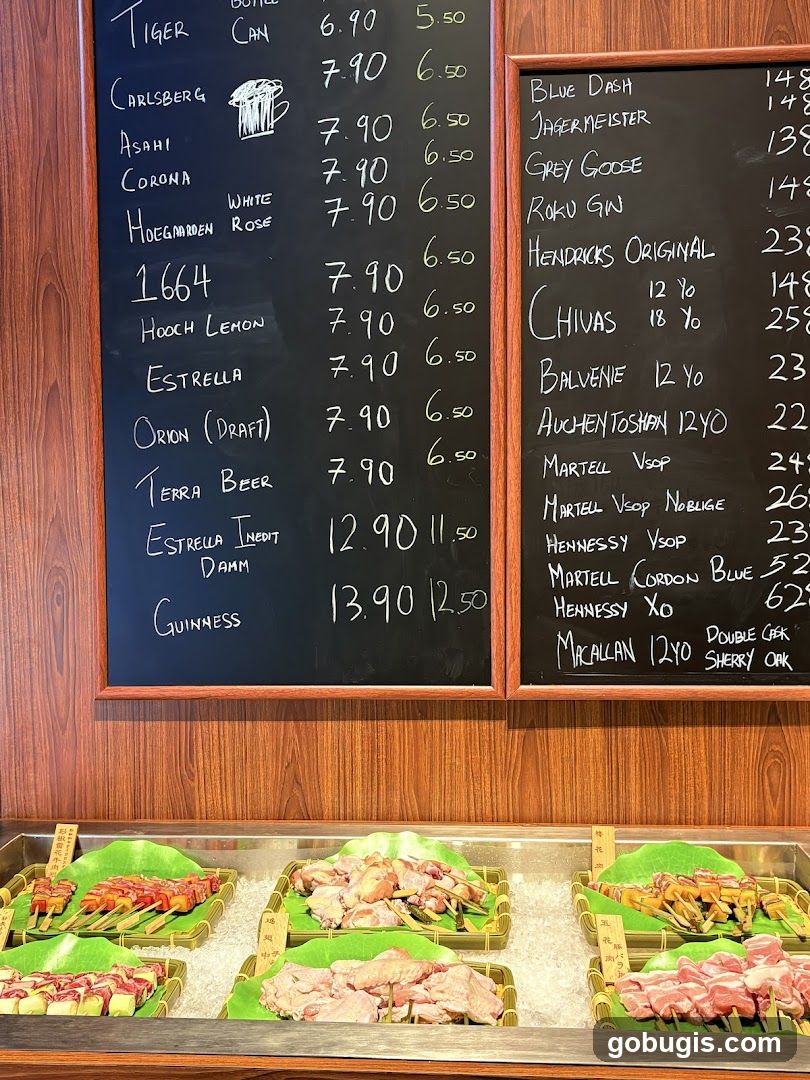 TIGER
CAN 6.90 5.50
CARLSBERG 7.90 6.50
ASAHI 7.90 6.50
CORONA 7.90 6.50
HOEGAARDEN WHITE ROSE 7.90 6.50
1664 7.90 6.50
HOOCH LEMON 7.90 6.50
ESTRELLA 7.90 6.50
ORION (DRAFT) 7.90 6.50
TERRA BEER 7.90 6.50
ESTRELLA INEDIT 12.90 11.50
DAMM
GUINNESS 13.90 12.50
BLUE DASH 148
JAGERMEISTER 148
GREY GOOSE 138
ROKU GIN 148
HENDRICKS ORIGINAL 238
CHIVAS 12 YO 148
18 YO 258
BALVENIE 12 YO 23
AUCHENTOSHAN 12YO 22
MARTELL VSOP 24
MARTELL VSOP NOBLIGE 26
HENNESSY VSOP 23
MARTELL CORDON BLUE 52
HENNESSY XO 628
MACALLAN 12YO DOUBLE CASK
SHERRY OAK
彩椒雪花牛肉
鸡翅中
五花肉
豚バラ
gobugis.com